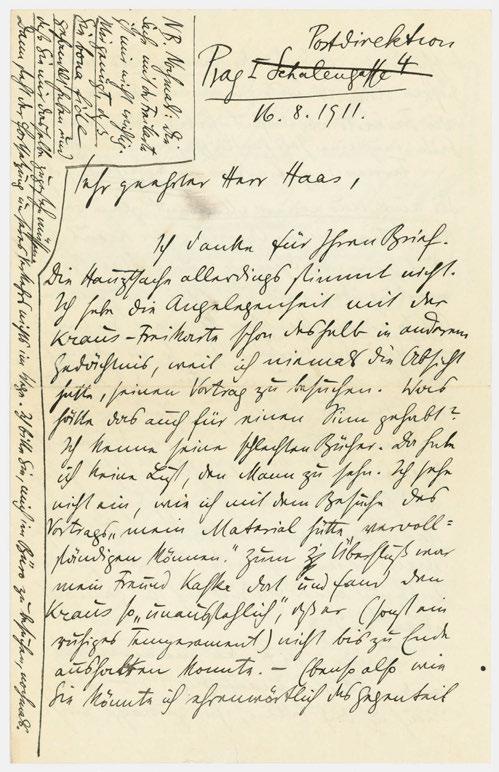 Postdirektion
Prag I Schalengasse 4
16. 8. 1911.
Sehr geehrter Herr Haas,
Ich danke für Ihren Brief.
Die Hauptsache allerdings stimmt nicht.
Ich habe die Angelegenheit mit der
Kraus-Freikarte schon deshalb in anderem
Gedächtnis, weil ich niemals die Absicht
hatte, seinen Vortrag zu besuchen. Was
hätte das auch für einen Sinn gehabt?
Ich kenne seine schlechten Bücher. Da habe
ich keine Lust, den Mann zu sehn. Ich sehe
nicht ein, wie ich mit dem Besuche des
Vortrags „mein Material hätte vervoll=
ständigen können." Zum Überfluß war
mein Freund Kafka dort und fand den
Kraus so „unausstehlich", daß er (sonst ein
ruhiges Temperament) nicht bis zu Ende
aushalten konnte. – Ebenso also wie
Sie könnte ich ehrenwörtlich das Gegenteil
NB. Nochmals: die
Sache mit der Freikarte
ist mir nicht wichtig.
Mir genügt, daß
Sie bona fide
gehandelt haben und
daß Sie mir dasselbe zugestehn müssen.
Dann steht der Fortsetzung unseres Verkehrs nichts im Wege. Ich bitte Sie, mich im Büro zu besuchen, nochmals.